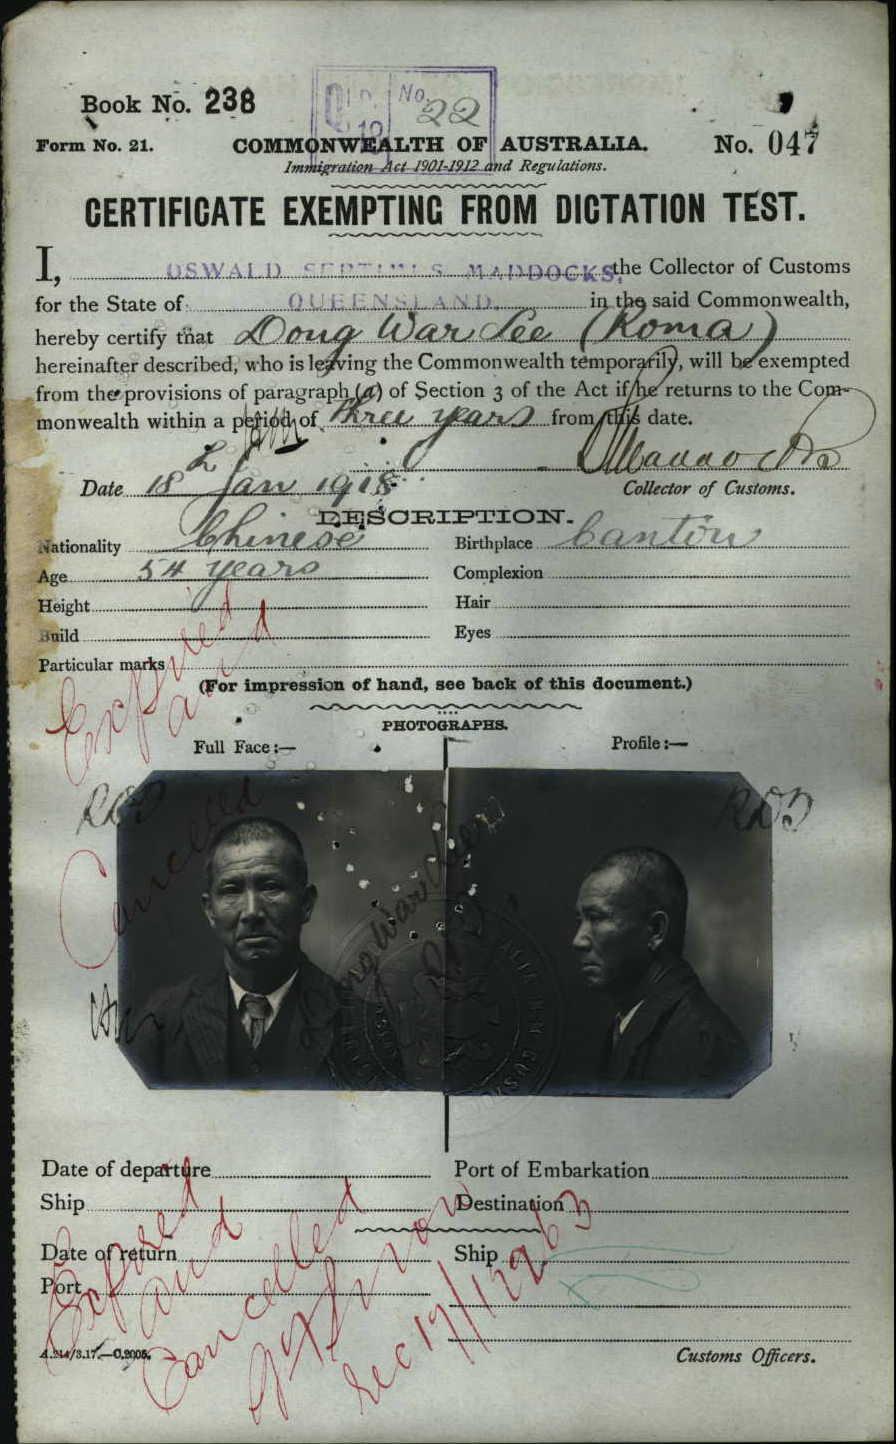 Book No. 238
No. 22
Form No. 21.
COMMONWEALTH OF AUSTRALIA.
No. 047
Immigration Act 1901-1912 and Regulations.
CERTIFICATE EXEMPTING FROM DICTATION TEST.
I, OSWALD SEPTIMUS MADDOCKS, the Collector of Customs
for the State of QUEENSLAND. in the said Commonwealth,
hereby certify that Dong War Lee (Roma)
hereinafter described, who is leaving the Commonwealth temporarily, will be exempted
from the provisions of paragraph (a) of Section 3 of the Act if he returns to the Com-
monwealth within a period of three years from this date.
Date 18 Jan 1918
Collector of Customs.
DESCRIPTION.
Nationality Chinese
Birthplace Canton
Age 54 years
Complexion
Height
Hair
Build
Eyes
Particular marks
(For impression of hand, see back of this document.)
Expired and
Cancelled
PHOTOGRAPHS.
Full Face:—
Profile:—
Dong War Lee
Date of departure
Port of Embarkation
Ship
Destination
Date of return
Ship
Port
Expired
and
Cancelled
A.214/3.17.—C.2005.
Customs Officers.